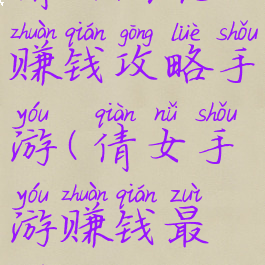 zhuàn qián gōng lüè shǒu
赚钱攻略手
yóu qiàn nǚ shǒu
游(倩女手
yóu zhuàn qián zuì
游赚钱最